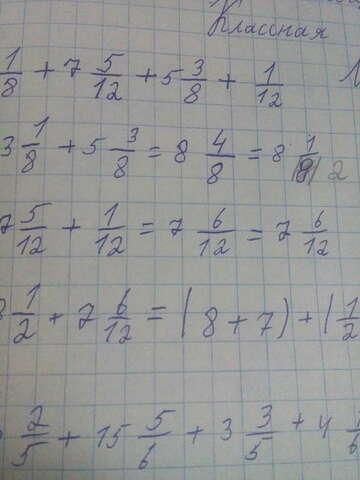 Классная
1/8 + 7 5/12 + 5 3/8 + 1/12
3 1/8 + 5 3/8 = 8 4/8 = 8 1/2
7 5/12 + 1/12 = 7 6/12 = 7 6/12
8 1/2 + 7 6/12 = (8 + 7) + (1/2
2/5 + 15 5/6 + 3 3/5 + 4 1/6